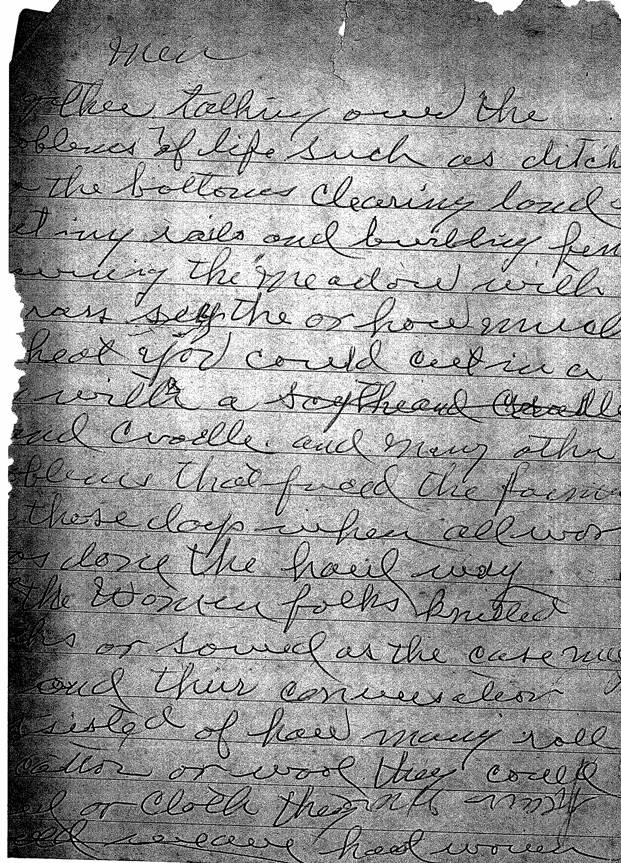 men
gather talking over the
oblems of life such as ditch
the bottoms clearing land
rails and building fen
the meadow with
rass scythe or how much
heat you could cut in a
with a scythe and cradle
and cradle and many other
oblems that faced the farm
those days when all wor
as done the hard way
the women folks knitted
or sowed as the case may
and their conversation
sisted of how many roll
cotton or wool they could
or cloth they
had women